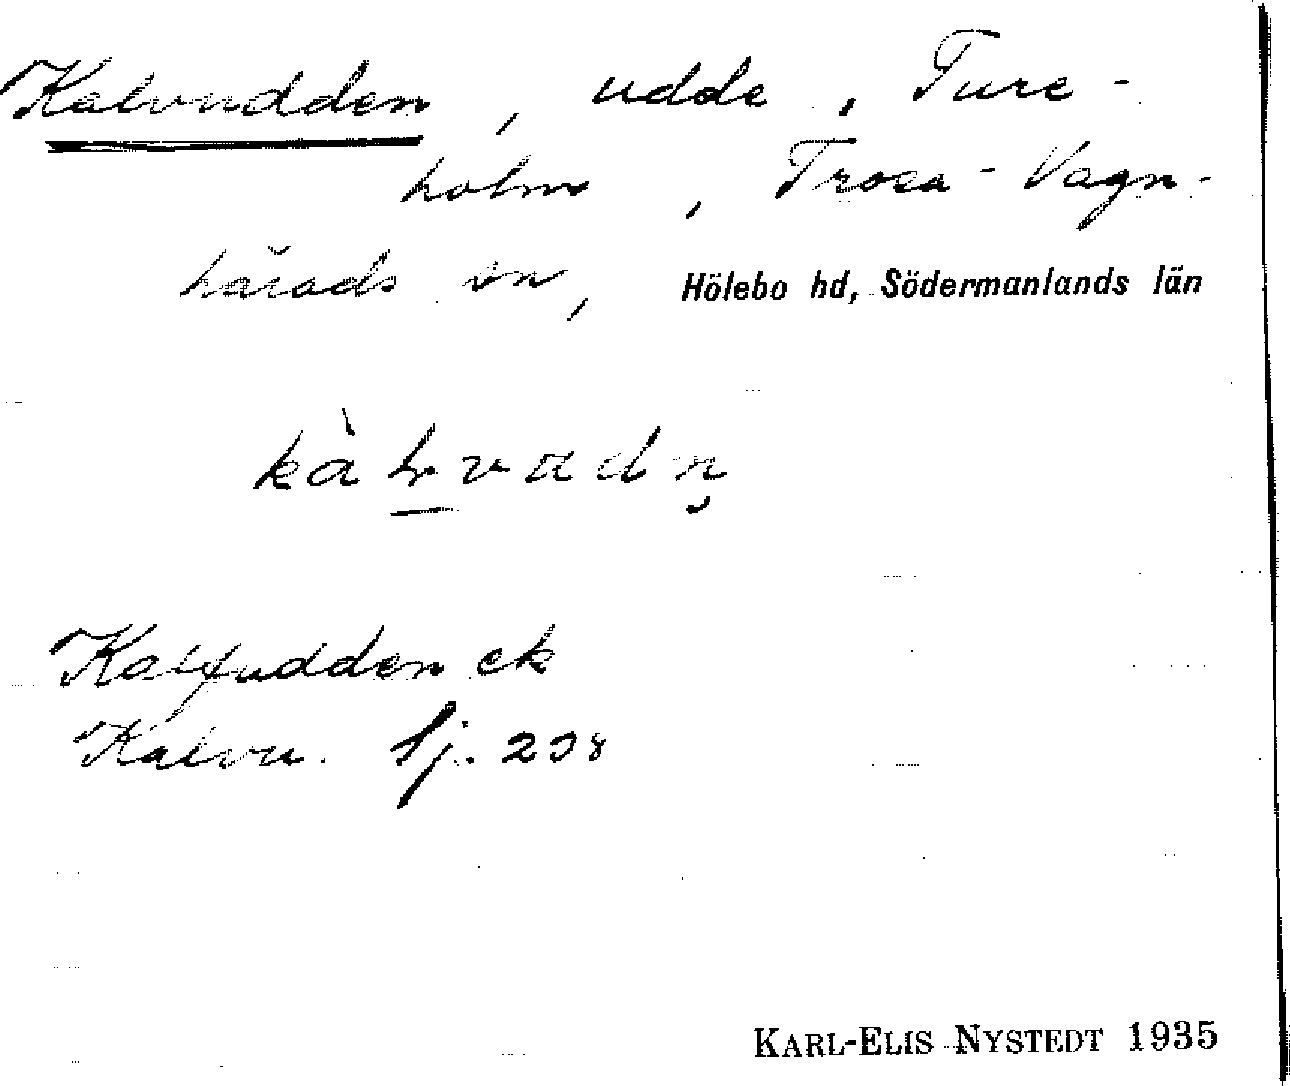 Kalvudden, udde, Ture-
holm, Trosa-Vagn-
härads sn, Hölebo hd, Södermanlands län
kàɫvudn̥
Kalfudden ek
Kalvu. Sj. 238
KARL-ELIS NYSTEDT 1935